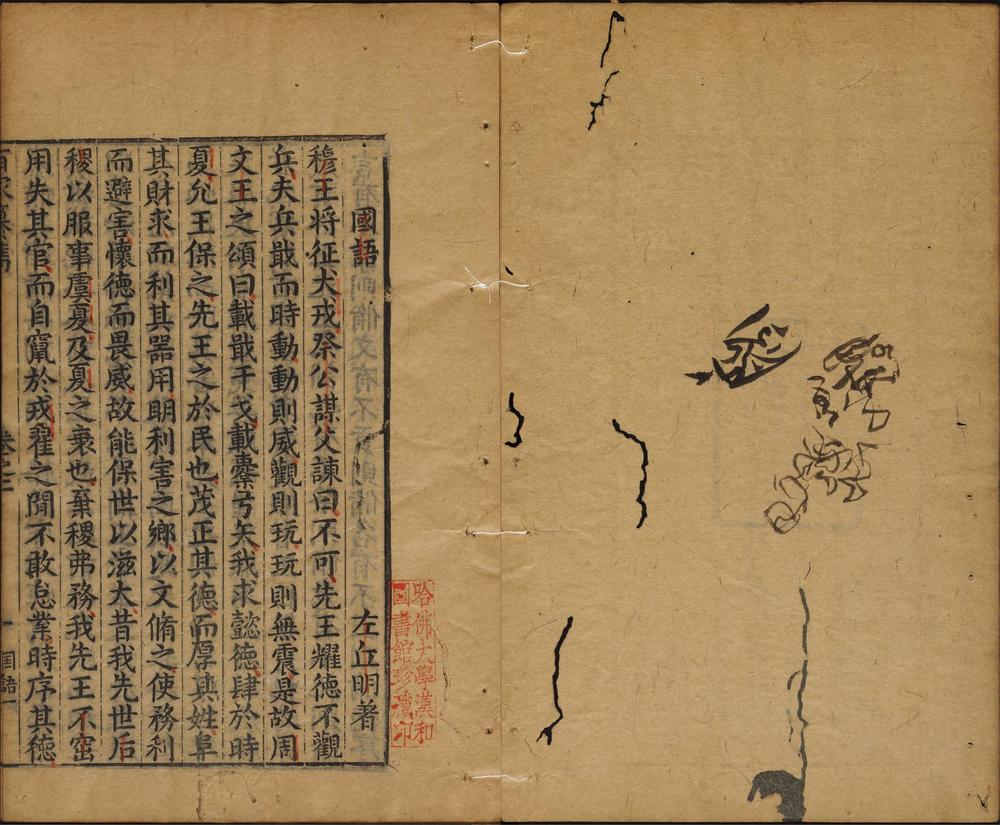 國語　左丘明著
穆王将征犬戎祭公謀父諫曰不可先王耀徳不觀
兵夫兵戢而時動動則威觀則玩玩則無震是故周
文王之頌曰載戢干戈載櫜弓矢我求懿徳肆於時
夏允王保之先王之於民也茂正其德而厚其姓阜
其財求而利其器用明利害之鄉以文脩之使務利
而避害懷徳而畏威故能保世以滋大昔我先世后
稷以服事虞夏及夏之衰也棄稷弗務我先王不窋
用失其官而自竄於戎翟之間不敢怠業時序其徳
卷之三
一
国語一
哈佛大學漢和
圖書館珍藏印